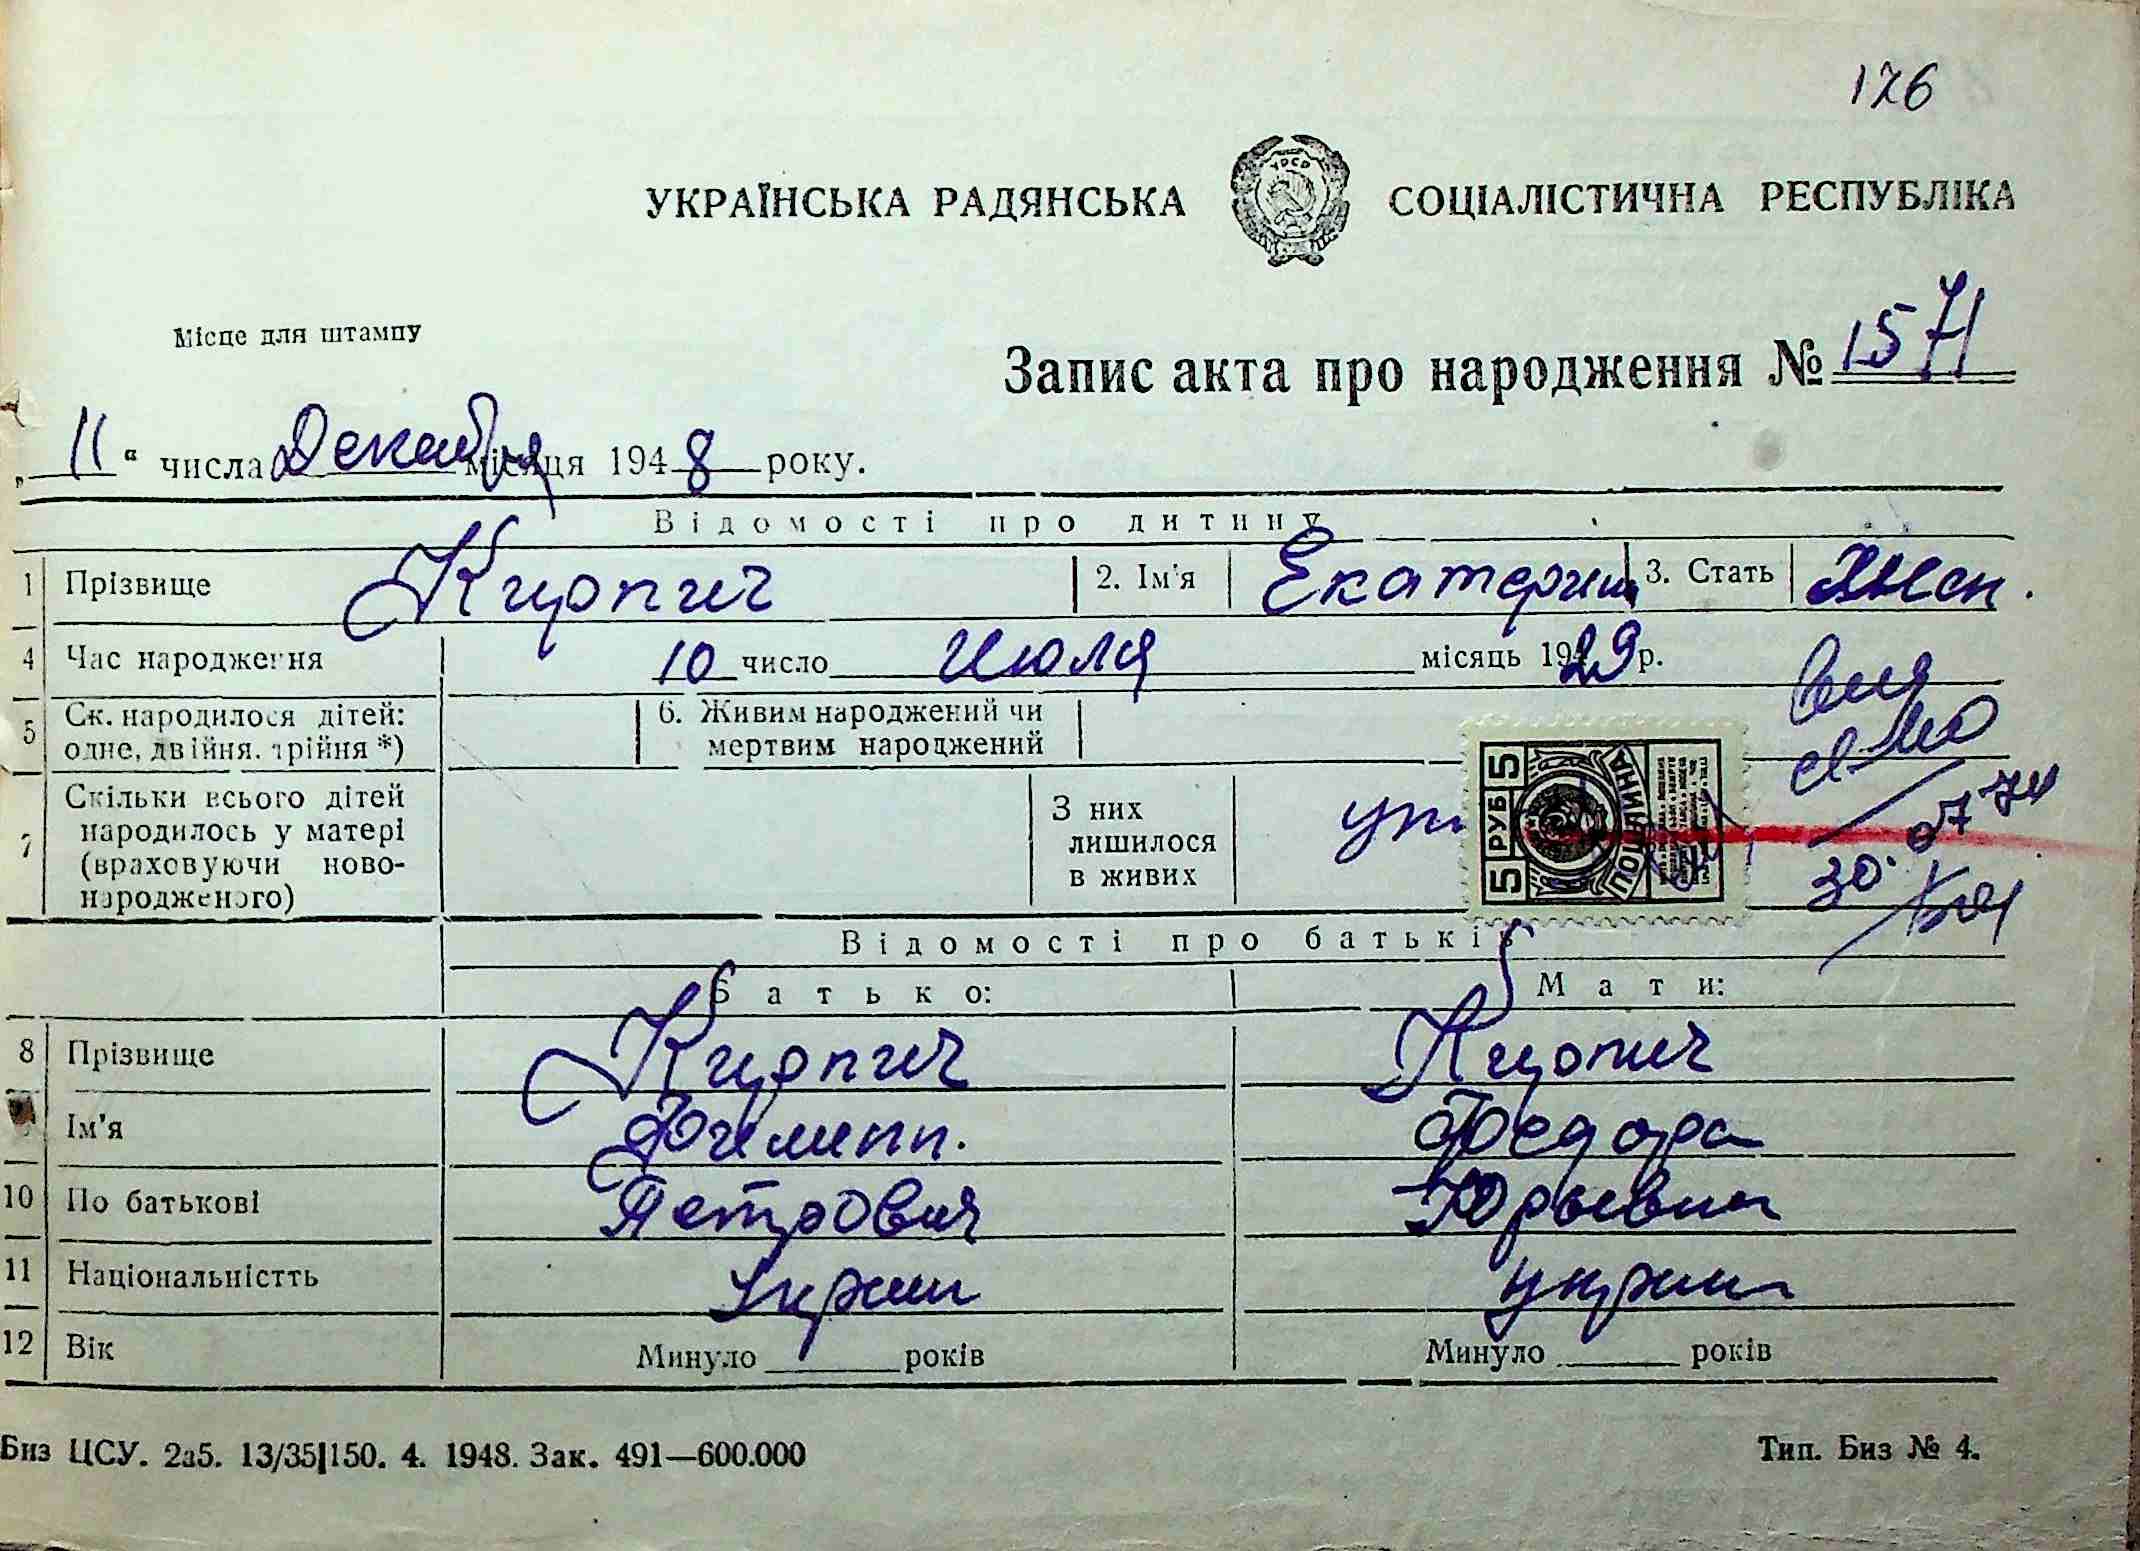 176
УКРАЇНСЬКА РАДЯНСЬКА СОЦІАЛІСТИЧНА РЕСПУБЛІКА
УРСР
Місце для штампу
Запис акта про народження № 1571
„ 11 “ числа Декабря місяця 1948 року.
Відомості про дитину
1 Прізвище Кирпич 2. Ім'я Екатерина 3. Стать жен.
4 Час народження 10 число Июля місяць 1929 р.
5 Ск. народилося дітей: одне, двійня. трійня *) 6. Живим народжений чи мертвим народжений
7 Скільки всього дітей народилось у матері (враховуючи новонародженого) З них лишилося в живих
5 РУБ 5
ПОШЛИНА
30. 07 74
Відомості про батьків
Батько: Мати:
8 Прізвище Кирпич Кирпич
Ім'я Филипп. Федора
10 По батькові Петрович Юрьевна
11 Національністть украин украин
12 Вік Минуло років Минуло років
Биз ЦСУ. 2а5. 13/35|150. 4. 1948. Зак. 491—600.000 Тип. Биз № 4.